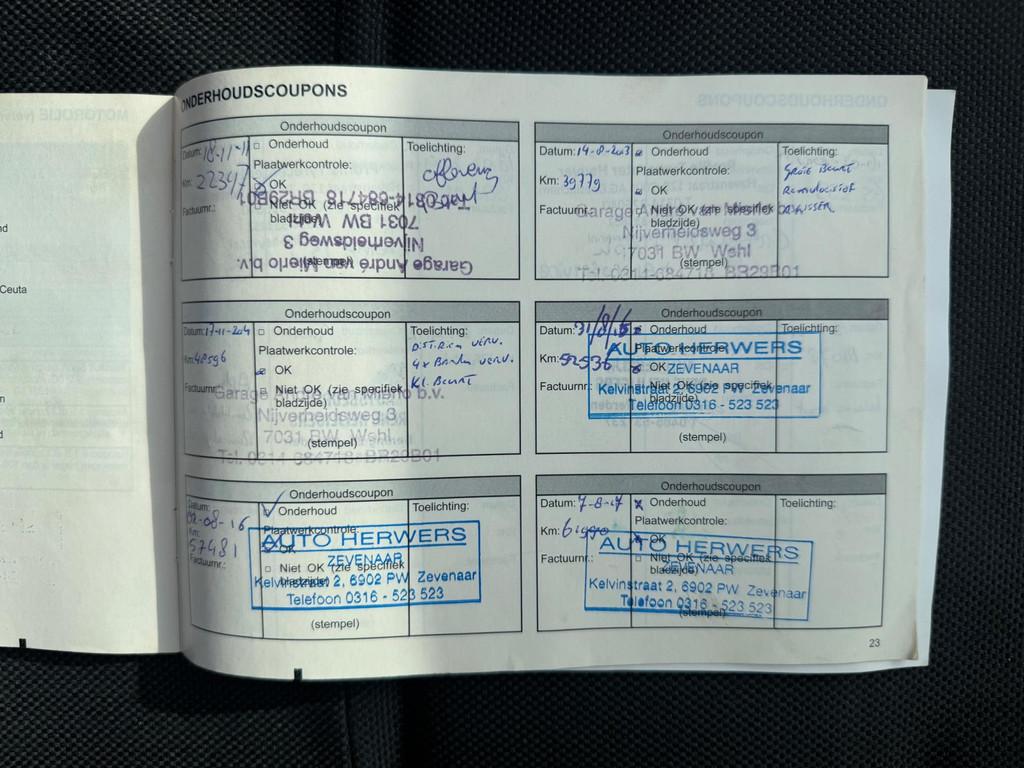 ONDERHOUDSCOUPONS
Onderhoudscoupon
Datum: 18-11-11
Km: 22347
Factuurnr.:
Onderhoud
Plaatwerkcontrole:
OK
Niet OK (zie specifiek
bladzijde)
(stempel)
Toelichting:
aflevering
Garage André van Mierlo b.v.
Nijverheidsweg 3
7031 BW Wehl
Tel. 0314-684718 BR29B01
Onderhoudscoupon
Datum: 14-8-2013
Km: 39779
Factuurnr.:
Onderhoud
Plaatwerkcontrole:
OK
Niet OK (zie specifiek
bladzijde)
(stempel)
Toelichting:
Grote Beurt
Remvloeistof
Garage André van Mierlo b.v.
Nijverheidsweg 3
7031 BW Wehl
Tel. 0314-684718 BR29B01
Onderhoudscoupon
Datum: 17-11-2014
Km: 48596
Factuurnr.:
Onderhoud
Plaatwerkcontrole:
OK
Niet OK (zie specifiek
bladzijde)
(stempel)
Toelichting:
Dist. Riem verv.
4x Banden verv.
Kl. Beurt
Garage André van Mierlo b.v.
Nijverheidsweg 3
7031 BW Wehl
Tel. 0314-684718 BR29B01
Onderhoudscoupon
Datum: 31/8/15
Km: 52536
Factuurnr.:
Onderhoud
Plaatwerkcontrole:
OK
Niet OK (zie specifiek
bladzijde)
(stempel)
Toelichting:
AUTO HERWERS
ZEVENAAR
Kelvinstraat 2, 6902 PW Zevenaar
Telefoon 0316 - 523 523
Onderhoudscoupon
Datum: 02-08-16
Km: 57481
Factuurnr.:
Onderhoud
Plaatwerkcontrole:
OK
Niet OK (zie specifiek
bladzijde)
(stempel)
Toelichting:
AUTO HERWERS
ZEVENAAR
Kelvinstraat 2, 6902 PW Zevenaar
Telefoon 0316 - 523 523
Onderhoudscoupon
Datum: 7-8-17
Km: 61990
Onderhoud
Plaatwerkcontrole:
OK
Niet OK (zie specifiek
bladzijde)
(stempel)
Toelichting:
AUTO HERWERS
ZEVENAAR
Kelvinstraat 2, 6902 PW Zevenaar
Telefoon 0316 - 523 523
23
Ceuta